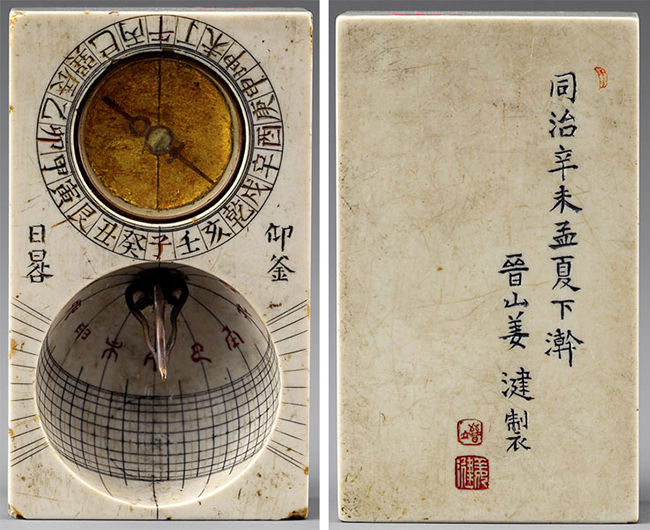 子癸丑艮寅甲卯乙辰巽巳丙午丁未坤申庚酉辛戌乾亥壬
仰釜
日晷
申未午巳辰
同治辛未孟夏下澣
晉山姜湕製